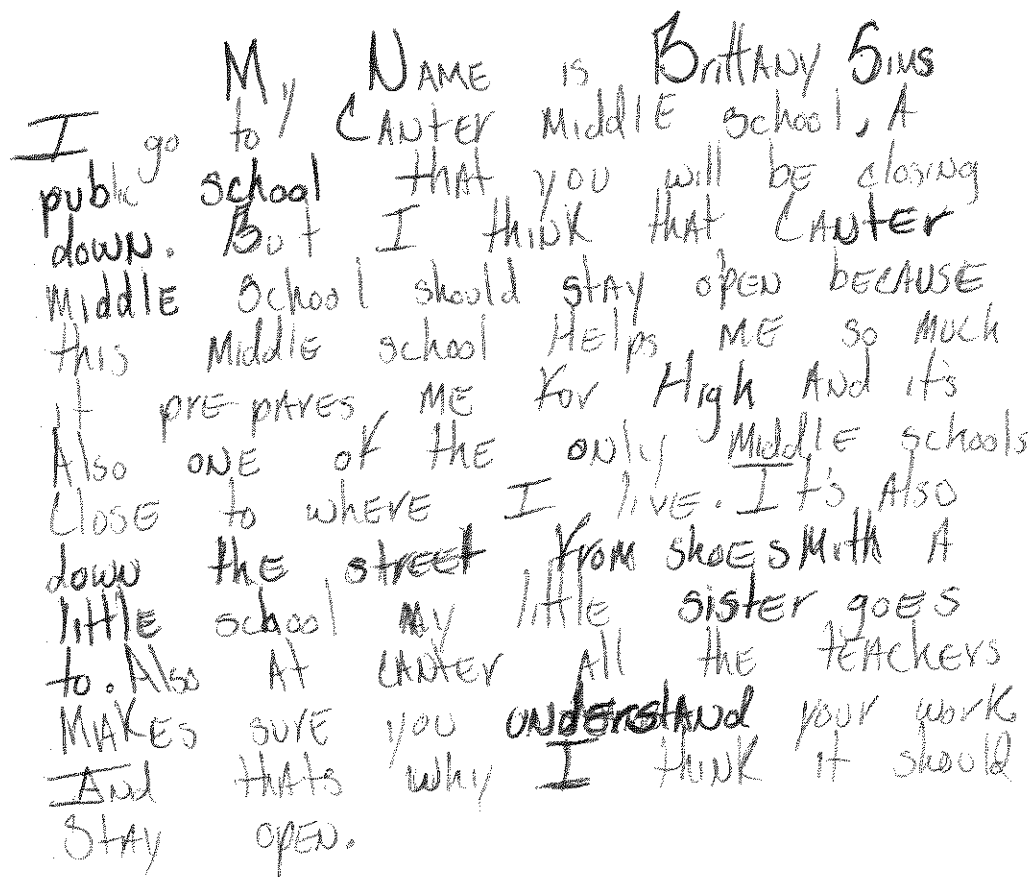 My Name is Brittany Sims
I go to Canter Middle school, A
public school that you will be closing
down. But I think that Canter
Middle School should stay open because
this Middle school Helps ME so Much
it prepares ME for High And it's
Also one of the only Middle schools
Close to where I live. It's Also
down the street from shoesmith A
little school my little sister goes
to. Also At canter all the teachers
Makes sure you understand your work.
And thats why I think it should
Stay open.